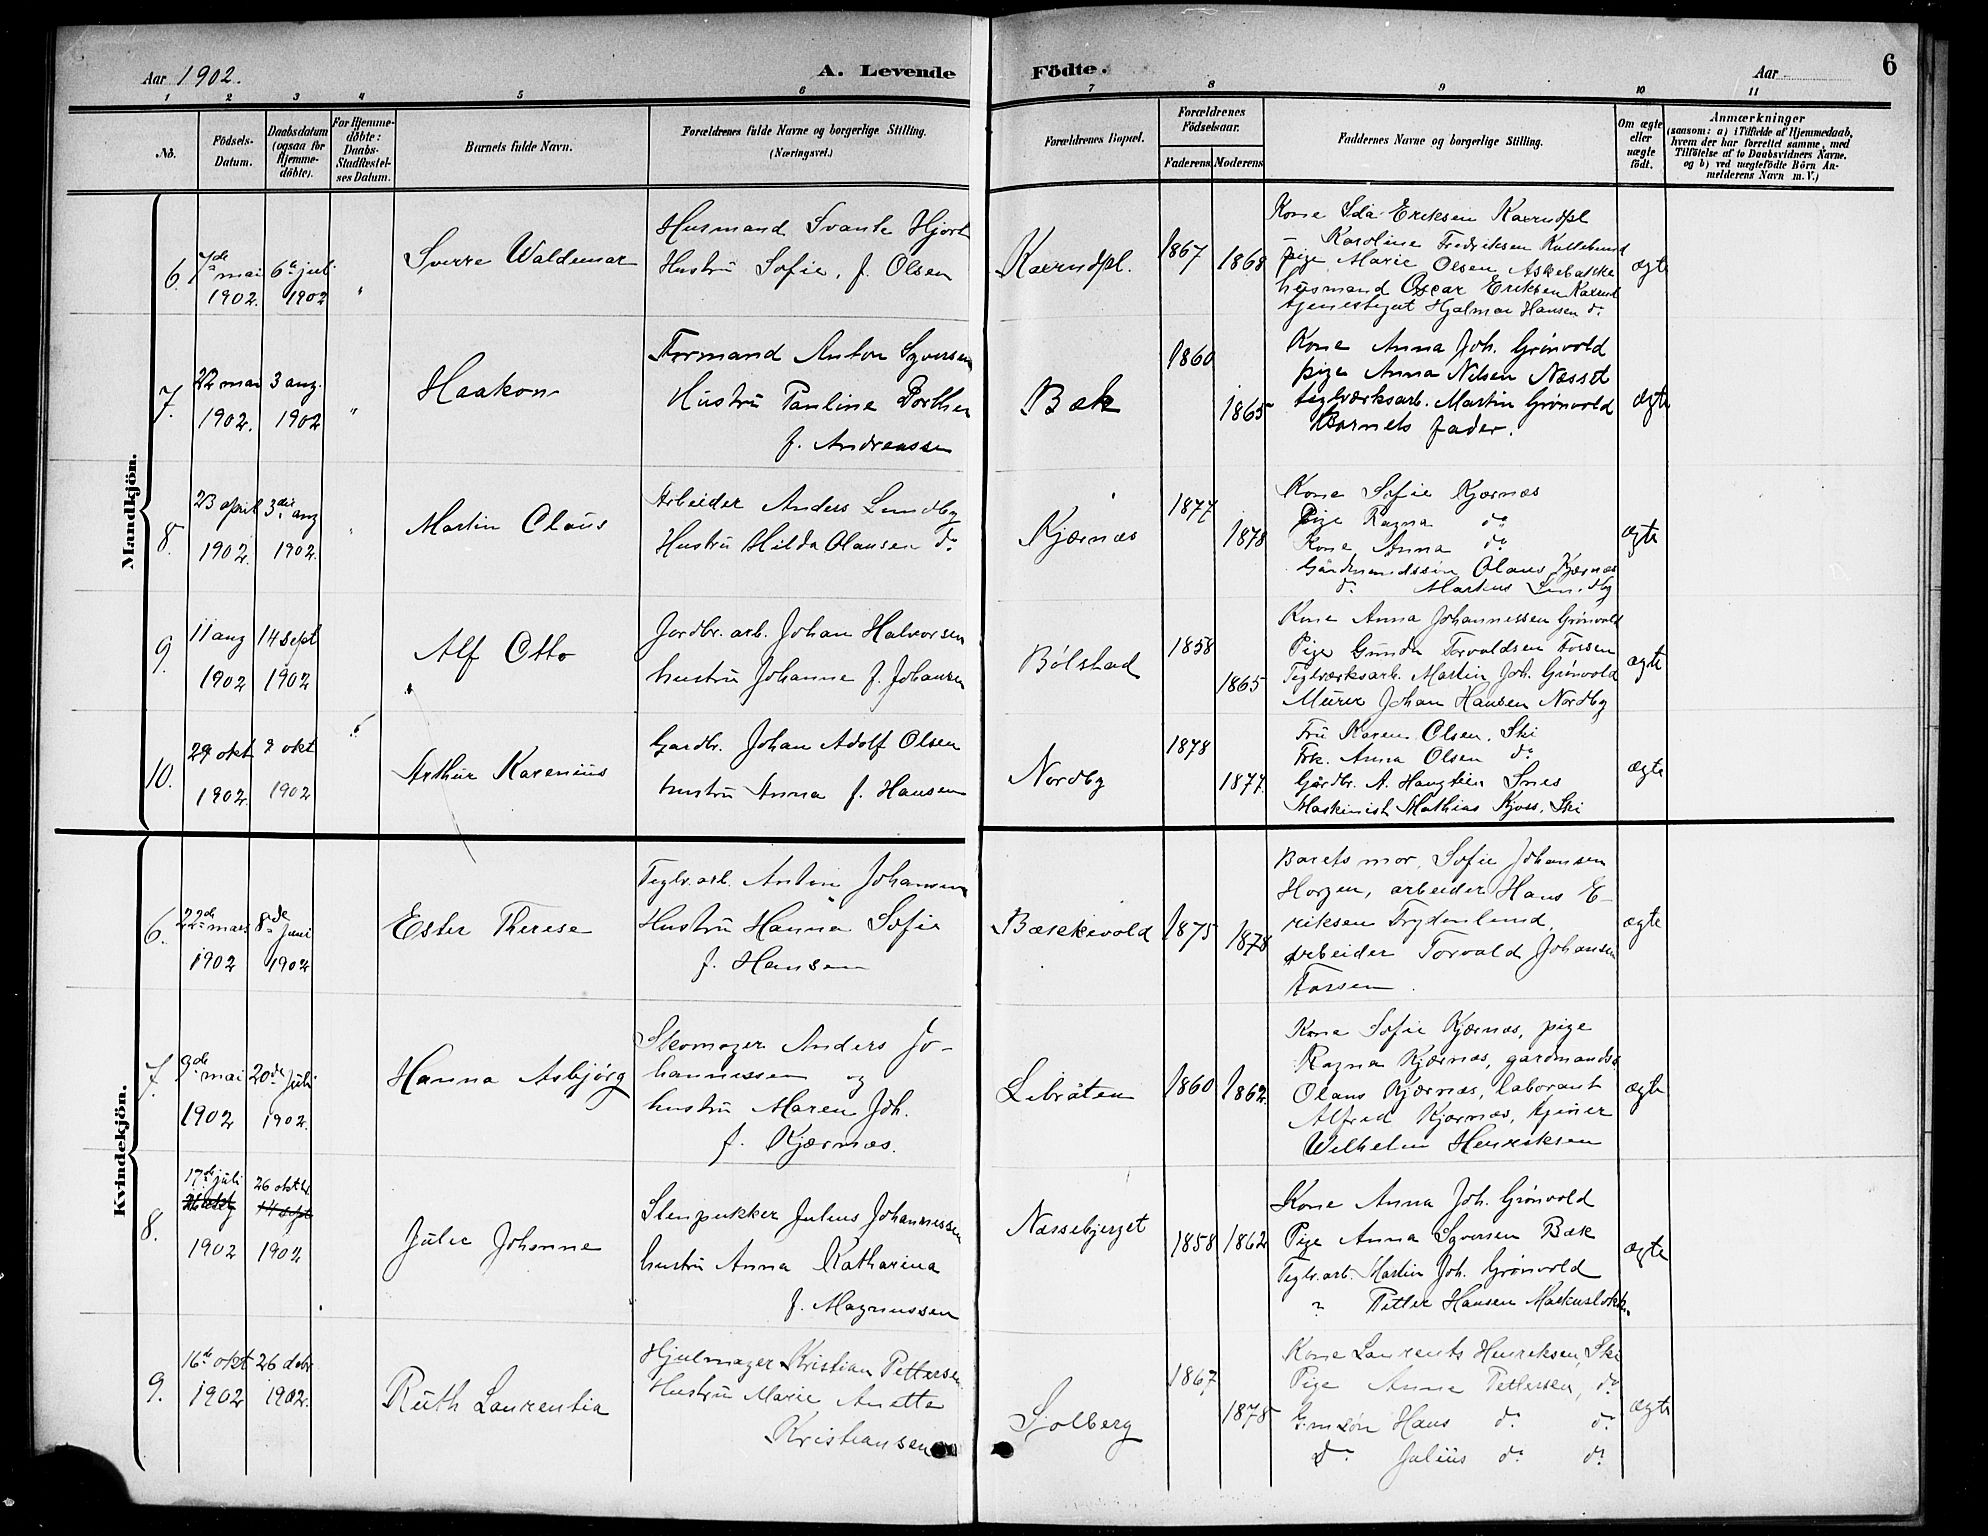 Aar 1902.
A. Levende
Födte.
Aar
6
1 2 3 4 5 6 7 8 9 10 11
No.
Födsels-
Datum.
Daabsdatum
(ogsaa for
Hjemme-
döbte).
For Hjemme-
döbte:
Daabs-
Stadfæstel-
ses Datum.
Barnets fulde Navn.
Forældrenes fulde Navne og borgerlige Stilling.
(Næringsvei.)
Forældrenes Bopæl.
Forældrenes
Födselsaar.
Faderens
Moderens
Faddernes Navne og borgerlige Stilling.
Om ægte
eller
uægte
födt.
Anmærkninger
(saasom: a) i Tilfælde af Hjemmedaab,
hvem der har forrettet samme, med
Tilföielse af to Daabsvidners Navne.
og b) ved uægtefödte Börn An-
melderens Navn m. V.)
Mandkjön.
6.
7de mai
1902.
6te juli
1902
"
Sverre Waldemar
Husmand Svante Hjort
Hustru Sofie, f. Olsen
Kærndpl.
1867
1868
Kone Ida Eriksen Kærndpl
– Karoline Fredriksen Kullebund
pige Marie Olsen Askebakke
husmand Oscar Eriksen Kærnd
tjenestegut Hjalmar Hansen do
ægte
7.
22 mai
1902.
3 aug.
1902
"
Haakon
Formand Anton Syversen
Hustru Pauline Dorthea
f. Andreassen
Bæk
1860
1865
Kone Anna Joh. Grönvold
pige Anna Nilsen Næsset
teglværksarb. Martin Grönvold
Barnets fader.
ægte
8.
23 april
1902.
3die aug
1902.
"
Martin Claus
Arbeider Anders Lundby
Hustru Hilda Olausen do
Kjærnæs
1877
1878
Kone Sofie Kjærnæs
Pige Ragna do
Kone Anna do
Gårdmandssön Olaus Kjærnæs
do Martens Lundby
ægte
9.
11 aug
1902
14 sept
1902
Alf Otto
Jordbr. arb. Johan Halvorsen
hustru Johanne f. Johansen
Bölstad
1858
1865
Kone Anna Johannessen Grönvold
Pige Gunda Torvaldsen Fossen
Teglværksarb. Martin Joh. Grönvold
Murer Johan Hansen Nordby
ægte
10.
29 okt
1902.
9 okt
1902
Arthur Karenius
Gardbr. Johan Adolf Olsen
hustru Anna f. Hansen
Nordby
1878
1877.
Fru Karen Olsen, Ski
Frk. Anna Olsen do
Gårdbr. A. Haugtien Snes
Maskinist Mathias Kjoss, Ski
ægte
Kvindekjön.
6.
22de mars
1902
8de Juni
1902
Ester Therese
Teglv. arb. Anton Johansen
Hustru Hanna Sofie
f. Hansen
Bækkevold
1875
1878
Barets mor, Sofie Johansen
Horgen, arbeider Hans E-
riksen Frydenlund,
arbeider Torvald Johansen
Forsen.
ægte
7.
9de mai
1902
20de Juli
1902.
Hanna Asbjørg
Skomager Anders Jo-
hannessen og
hustru Maren Joh.
f. Kjærnæs.
Libråten
1860
1862.
Kone Sofie Kjærnæs, pige
Ragna Kjærnæs, gardmands
Olaus Kjærnæs, laborant
Alfred Kjærnæs, tjener
Wilhelm Henriksen
ægte
8.
17de juli
1902
26 oktbr.
14 sept
1902
Julie Johanne
Stenpukker Julius Johannessen
hustru Anna Katharina
f. Magnussen
Næssebjerget
1858
1862
Kone Anna Joh. Grönvold
Pige Anna Syversen Bæk
Teglv. arb. Martin Joh. Grönvold
" Petter Hansen
ægte
9.
16de okt
1902
26 debr
1902.
Ruth Laurentia
Hjulmager Kristian Pettersen
Hustru Marie Anette
Kristiansen
Solberg
1867
1878
Kone Laurents Henriksen, Ski
Pige Anne Pettersen, do
Gmsön Hans do do
do Julius do do
ægte